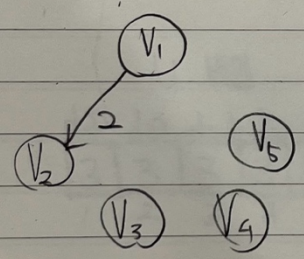 V₁
2
V₅
V₂
V₃
V₄